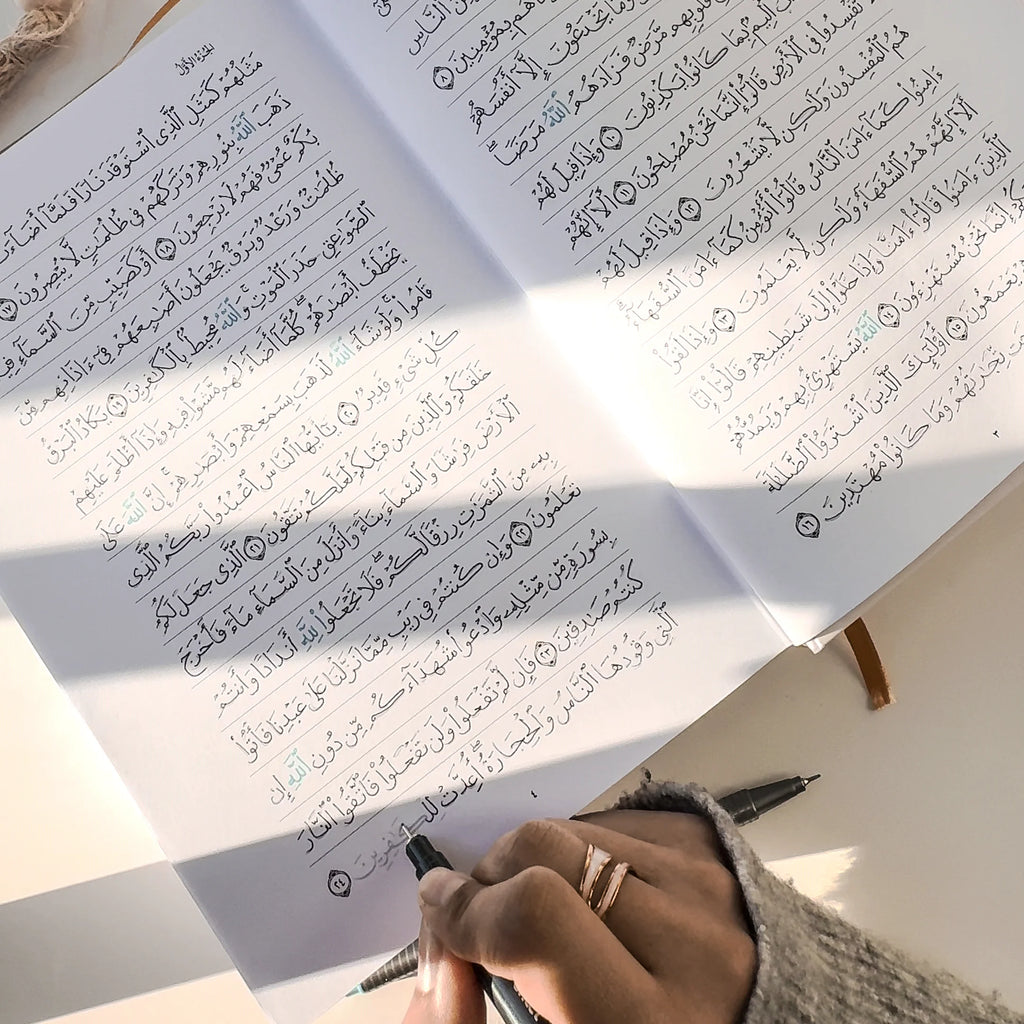 ٱلنَّاسِ
هُم بِمُؤْمِنِينَ ٨
وَمَا يَخْدَعُونَ إِلَّآ أَنفُسَهُمْ
قُلُوبِهِم مَّرَضٌ فَزَادَهُمُ ٱللَّهُ مَرَضًا
أَلِيمٌۢ بِمَا كَانُوا۟ يَكْذِبُونَ ١٠ وَإِذَا قِيلَ لَهُمْ
لَا تُفْسِدُوا۟ فِى ٱلْأَرْضِ قَالُوٓا۟ إِنَّمَا نَحْنُ مُصْلِحُونَ ١١ أَلَآ إِنَّهُمْ
هُمُ ٱلْمُفْسِدُونَ وَلَٰكِن لَّا يَشْعُرُونَ ١٢ وَإِذَا قِيلَ لَهُمْ
ءَامِنُوا۟ كَمَآ ءَامَنَ ٱلنَّاسُ قَالُوٓا۟ أَنُؤْمِنُ كَمَآ ءَامَنَ ٱلسُّفَهَآءُ
أَلَآ إِنَّهُمْ هُمُ ٱلسُّفَهَآءُ وَلَٰكِن لَّا يَعْلَمُونَ ١٣ وَإِذَا لَقُوا۟
ٱلَّذِينَ ءَامَنُوا۟ قَالُوٓا۟ ءَامَنَّا وَإِذَا خَلَوْا۟ إِلَىٰ شَيَٰطِينِهِمْ قَالُوٓا۟ إِنَّا
إِنَّمَا نَحْنُ مُسْتَهْزِءُونَ ١٤ ٱللَّهُ يَسْتَهْزِئُ بِهِمْ وَيَمُدُّهُمْ
يَعْمَهُونَ ١٥ أُو۟لَٰٓئِكَ ٱلَّذِينَ ٱشْتَرَوُا۟ ٱلضَّلَٰلَةَ
تِّجَٰرَتُهُمْ وَمَا كَانُوا۟ مُهْتَدِينَ ١٦
٣
الجزء الأول
مَثَلُهُمْ كَمَثَلِ ٱلَّذِى ٱسْتَوْقَدَ نَارًا فَلَمَّآ أَضَآءَتْ
ذَهَبَ ٱللَّهُ بِنُورِهِمْ وَتَرَكَهُمْ فِى ظُلُمَٰتٍ لَّا يُبْصِرُونَ ١٧
بُكْمٌ عُمْىٌ فَهُمْ لَا يَرْجِعُونَ ١٨ أَوْ كَصَيِّبٍ مِّنَ ٱلسَّمَآءِ فِيهِ
ظُلُمَٰتٌ وَرَعْدٌ وَبَرْقٌ يَجْعَلُونَ أَصَٰبِعَهُمْ فِىٓ ءَاذَانِهِم مِّنَ
ٱلصَّوَٰعِقِ حَذَرَ ٱلْمَوْتِ وَٱللَّهُ مُحِيطٌۢ بِٱلْكَٰفِرِينَ ١٩ يَكَادُ ٱلْبَرْقُ
يَخْطَفُ أَبْصَٰرَهُمْ كُلَّمَآ أَضَآءَ لَهُم مَّشَوْا۟ فِيهِ وَإِذَآ أَظْلَمَ عَلَيْهِمْ
قَامُوا۟ وَلَوْ شَآءَ ٱللَّهُ لَذَهَبَ بِسَمْعِهِمْ وَأَبْصَٰرِهِمْ إِنَّ ٱللَّهَ عَلَىٰ
كُلِّ شَىْءٍ قَدِيرٌ ٢٠ يَٰٓأَيُّهَا ٱلنَّاسُ ٱعْبُدُوا۟ رَبَّكُمُ ٱلَّذِى
خَلَقَكُمْ وَٱلَّذِينَ مِن قَبْلِكُمْ لَعَلَّكُمْ تَتَّقُونَ ٢١ ٱلَّذِى جَعَلَ لَكُمُ
ٱلْأَرْضَ فِرَٰشًا وَٱلسَّمَآءَ بِنَآءً وَأَنزَلَ مِنَ ٱلسَّمَآءِ مَآءً فَأَخْرَجَ
بِهِۦ مِنَ ٱلثَّمَرَٰتِ رِزْقًا لَّكُمْ فَلَا تَجْعَلُوا۟ لِلَّهِ أَندَادًا وَأَنتُمْ
تَعْلَمُونَ ٢٢ وَإِن كُنتُمْ فِى رَيْبٍ مِّمَّا نَزَّلْنَا عَلَىٰ عَبْدِنَا فَأْتُوا۟
بِسُورَةٍ مِّن مِّثْلِهِۦ وَٱدْعُوا۟ شُهَدَآءَكُم مِّن دُونِ ٱللَّهِ إِن
كُنتُمْ صَٰدِقِينَ ٢٣ فَإِن لَّمْ تَفْعَلُوا۟ وَلَن تَفْعَلُوا۟ فَٱتَّقُوا۟ ٱلنَّارَ
ٱلَّتِى وَقُودُهَا ٱلنَّاسُ وَٱلْحِجَارَةُ أُعِدَّتْ لِلْكَٰفِرِينَ ٢٤
٤